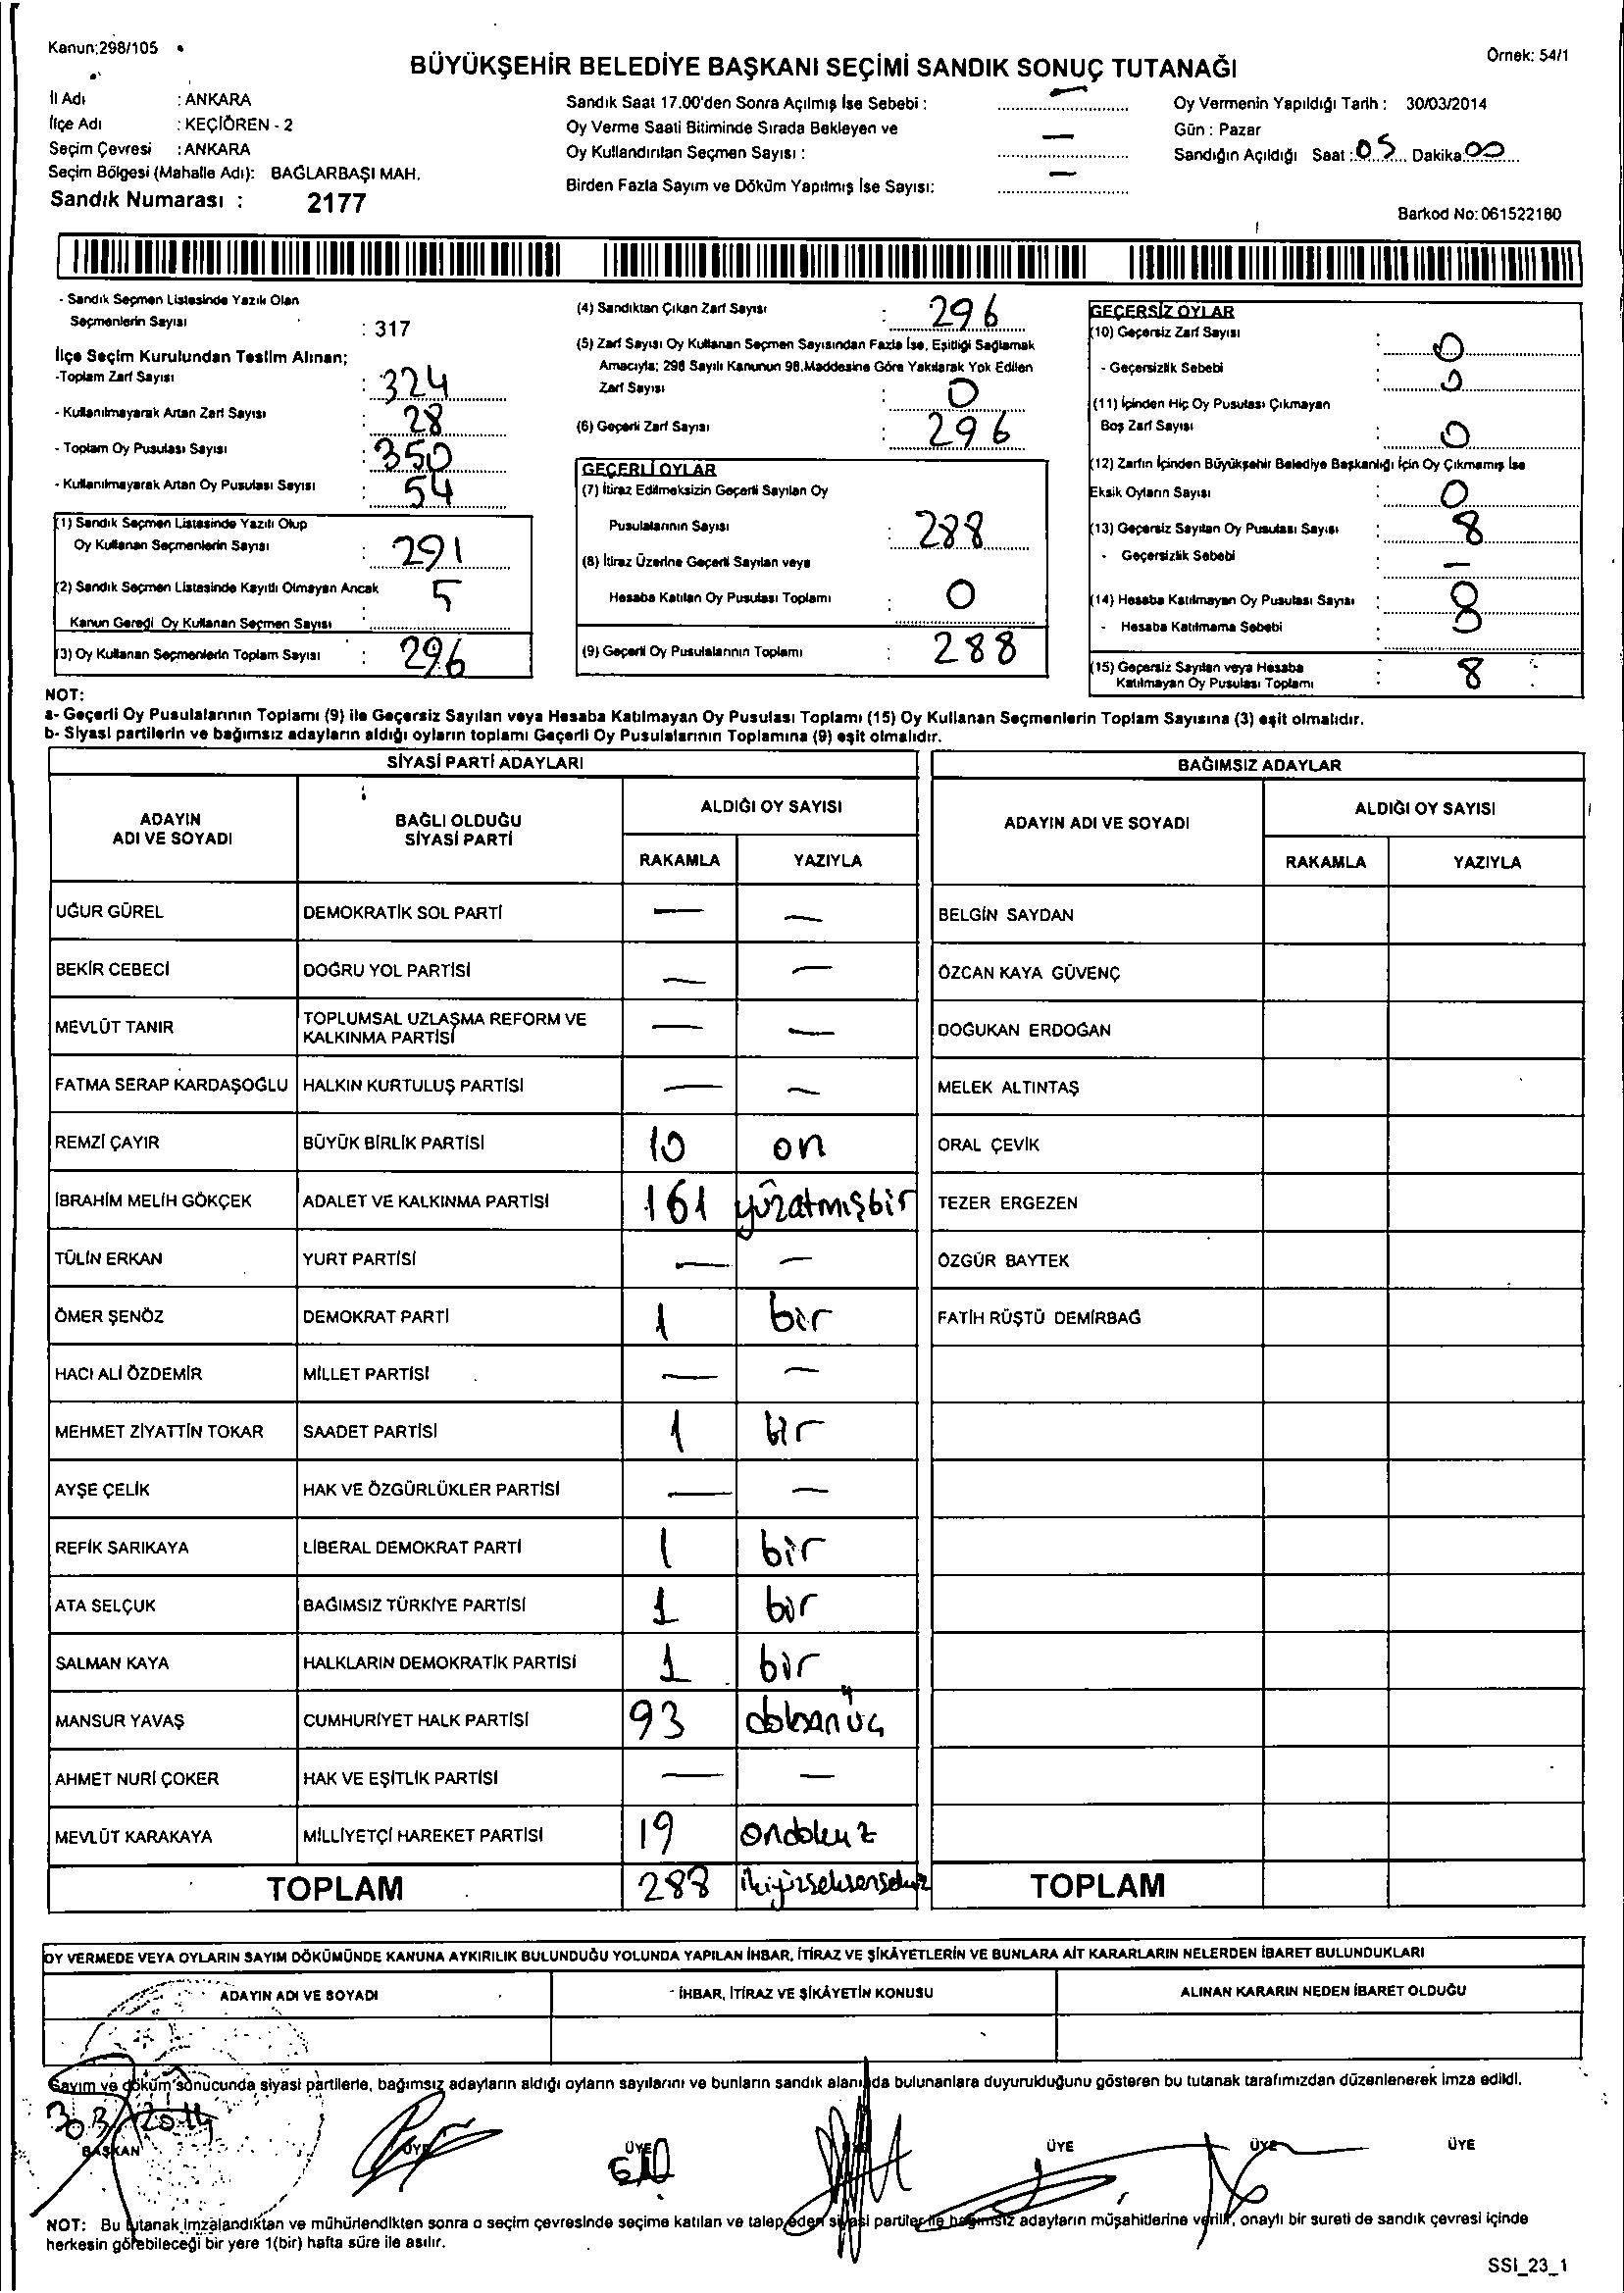 Kanun:298/105
Örnek: 54/1
BÜYÜKŞEHİR BELEDİYE BAŞKANI SEÇİMİ SANDIK SONUÇ TUTANAĞI
İl Adı : ANKARA
İlçe Adı : KEÇİÖREN - 2
Seçim Çevresi : ANKARA
Seçim Bölgesi (Mahalle Adı): BAĞLARBAŞI MAH.
Sandık Numarası : 2177
Sandık Saat 17.00'den Sonra Açılmış İse Sebebi : —
Oy Verme Saati Bitiminde Sırada Bekleyen ve
Oy Kullandırılan Seçmen Sayısı : —
Birden Fazla Sayım ve Döküm Yapılmış İse Sayısı: —
Oy Vermenin Yapıldığı Tarih : 30/03/2014
Gün : Pazar
Sandığın Açıldığı Saat : 05 Dakika: 00
Barkod No: 061522180
- Sandık Seçmen Listesinde Yazılı Olan
Seçmenlerin Sayısı : 317
İlçe Seçim Kurulundan Teslim Alınan;
-Toplam Zarf Sayısı : 324
- Kullanılmayarak Artan Zarf Sayısı : 28
- Toplam Oy Pusulası Sayısı : 350
- Kullanılmayarak Artan Oy Pusulası Sayısı : 54
(1) Sandık Seçmen Listesinde Yazılı Olup
Oy Kullanan Seçmenlerin Sayısı : 291
(2) Sandık Seçmen Listesinde Kayıtlı Olmayan Ancak
Kanun Gereği Oy Kullanan Seçmen Sayısı : 5
(3) Oy Kullanan Seçmenlerin Toplam Sayısı : 296
(4) Sandıktan Çıkan Zarf Sayısı : 296
(5) Zarf Sayısı Oy Kullanan Seçmen Sayısından Fazla İse, Eşitliği Sağlamak
Amacıyla; 298 Sayılı Kanunun 98.Maddesine Göre Yakılarak Yok Edilen
Zarf Sayısı : 0
(6) Geçerli Zarf Sayısı : 296
GEÇERLİ OYLAR
(7) İtiraz Edilmeksizin Geçerli Sayılan Oy
Pusulalarının Sayısı : 288
(8) İtiraz Üzerine Geçerli Sayılan veya
Hesaba Katılan Oy Pusulası Toplamı : 0
(9) Geçerli Oy Pusulalarının Toplamı : 288
GEÇERSİZ OYLAR
(10) Geçersiz Zarf Sayısı : 0
- Geçersizlik Sebebi : 0
(11) İçinden Hiç Oy Pusulası Çıkmayan
Boş Zarf Sayısı : 0
(12) Zarfın İçinden Büyükşehir Belediye Başkanlığı İçin Oy Çıkmamış İse
Eksik Oyların Sayısı : 0
(13) Geçersiz Sayılan Oy Pusulası Sayısı : 8
- Geçersizlik Sebebi : —
(14) Hesaba Katılmayan Oy Pusulası Sayısı : 0
- Hesaba Katılmama Sebebi : 0
(15) Geçersiz Sayılan veya Hesaba
Katılmayan Oy Pusulası Toplamı : 8
NOT:
a- Geçerli Oy Pusulalarının Toplamı (9) ile Geçersiz Sayılan veya Hesaba Katılmayan Oy Pusulası Toplamı (15) Oy Kullanan Seçmenlerin Toplam Sayısına (3) eşit olmalıdır.
b- Siyasi partilerin ve bağımsız adayların aldığı oyların toplamı Geçerli Oy Pusulalarının Toplamına (9) eşit olmalıdır.
SİYASİ PARTİ ADAYLARI
ADAYIN ADI VE SOYADI BAĞLI OLDUĞU SİYASİ PARTİ ALDIĞI OY SAYISI
RAKAMLA YAZIYLA
UĞUR GÜREL DEMOKRATİK SOL PARTİ — —
BEKİR CEBECİ DOĞRU YOL PARTİSİ — —
MEVLÜT TANIR TOPLUMSAL UZLAŞMA REFORM VE KALKINMA PARTİSİ — —
FATMA SERAP KARDAŞOĞLU HALKIN KURTULUŞ PARTİSİ — —
REMZİ ÇAYIR BÜYÜK BİRLİK PARTİSİ 10 on
İBRAHİM MELİH GÖKÇEK ADALET VE KALKINMA PARTİSİ 161 yüzatmışbir
TÜLİN ERKAN YURT PARTİSİ — —
ÖMER ŞENÖZ DEMOKRAT PARTİ 1 bir
HACI ALİ ÖZDEMİR MİLLET PARTİSİ — —
MEHMET ZİYATTİN TOKAR SAADET PARTİSİ 1 bir
AYŞE ÇELİK HAK VE ÖZGÜRLÜKLER PARTİSİ — —
REFİK SARIKAYA LİBERAL DEMOKRAT PARTİ 1 bir
ATA SELÇUK BAĞIMSIZ TÜRKİYE PARTİSİ 1 bir
SALMAN KAYA HALKLARIN DEMOKRATİK PARTİSİ 1 bir
MANSUR YAVAŞ CUMHURİYET HALK PARTİSİ 93 doksanüç
AHMET NURİ ÇOKER HAK VE EŞİTLİK PARTİSİ — —
MEVLÜT KARAKAYA MİLLİYETÇİ HAREKET PARTİSİ 19 ondokuz
TOPLAM 288 ikiyüzseksensekiz
BAĞIMSIZ ADAYLAR
ADAYIN ADI VE SOYADI ALDIĞI OY SAYISI
RAKAMLA YAZIYLA
BELGİN SAYDAN
ÖZCAN KAYA GÜVENÇ
DOĞUKAN ERDOĞAN
MELEK ALTINTAŞ
ORAL ÇEVİK
TEZER ERGEZEN
ÖZGÜR BAYTEK
FATİH RÜŞTÜ DEMİRBAĞ
TOPLAM
OY VERMEDE VEYA OYLARIN SAYIM DÖKÜMÜNDE KANUNA AYKIRILIK BULUNDUĞU YOLUNDA YAPILAN İHBAR, İTİRAZ VE ŞİKÂYETLERİN VE BUNLARA AİT KARARLARIN NELERDEN İBARET BULUNDUKLARI
ADAYIN ADI VE SOYADI İHBAR, İTİRAZ VE ŞİKÂYETİN KONUSU ALINAN KARARIN NEDEN İBARET OLDUĞU
Sayım ve döküm sonucunda siyasi partilerle, bağımsız adayların aldığı oyların sayılarını ve bunların sandık alanında bulunanlara duyurulduğunu gösteren bu tutanak tarafımızdan düzenlenerek imza edildi.
303/2014
BAŞKAN ÜYE ÜYE ÜYE ÜYE ÜYE
NOT: Bu tutanak imzalandıktan ve mühürlendikten sonra o seçim çevresinde seçime katılan ve talep eden siyasi partiler ile bağımsız adayların müşahitlerine verilir, onaylı bir sureti de sandık çevresi içinde
herkesin görebileceği bir yere 1(bir) hafta süre ile asılır.
SSI_23_1